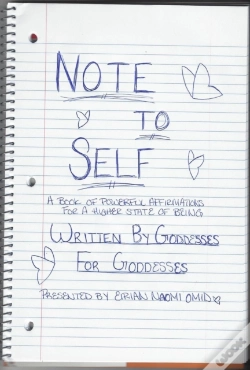 NOTE
TO
SELF
A BOOK OF POWERFUL AFFIRMATIONS
FOR A HIGHER STATE OF BEING
WRITTEN BY GODDESSES
FOR GODDESSES
PRESENTED BY EIRIAN NAOMI OMID
wook